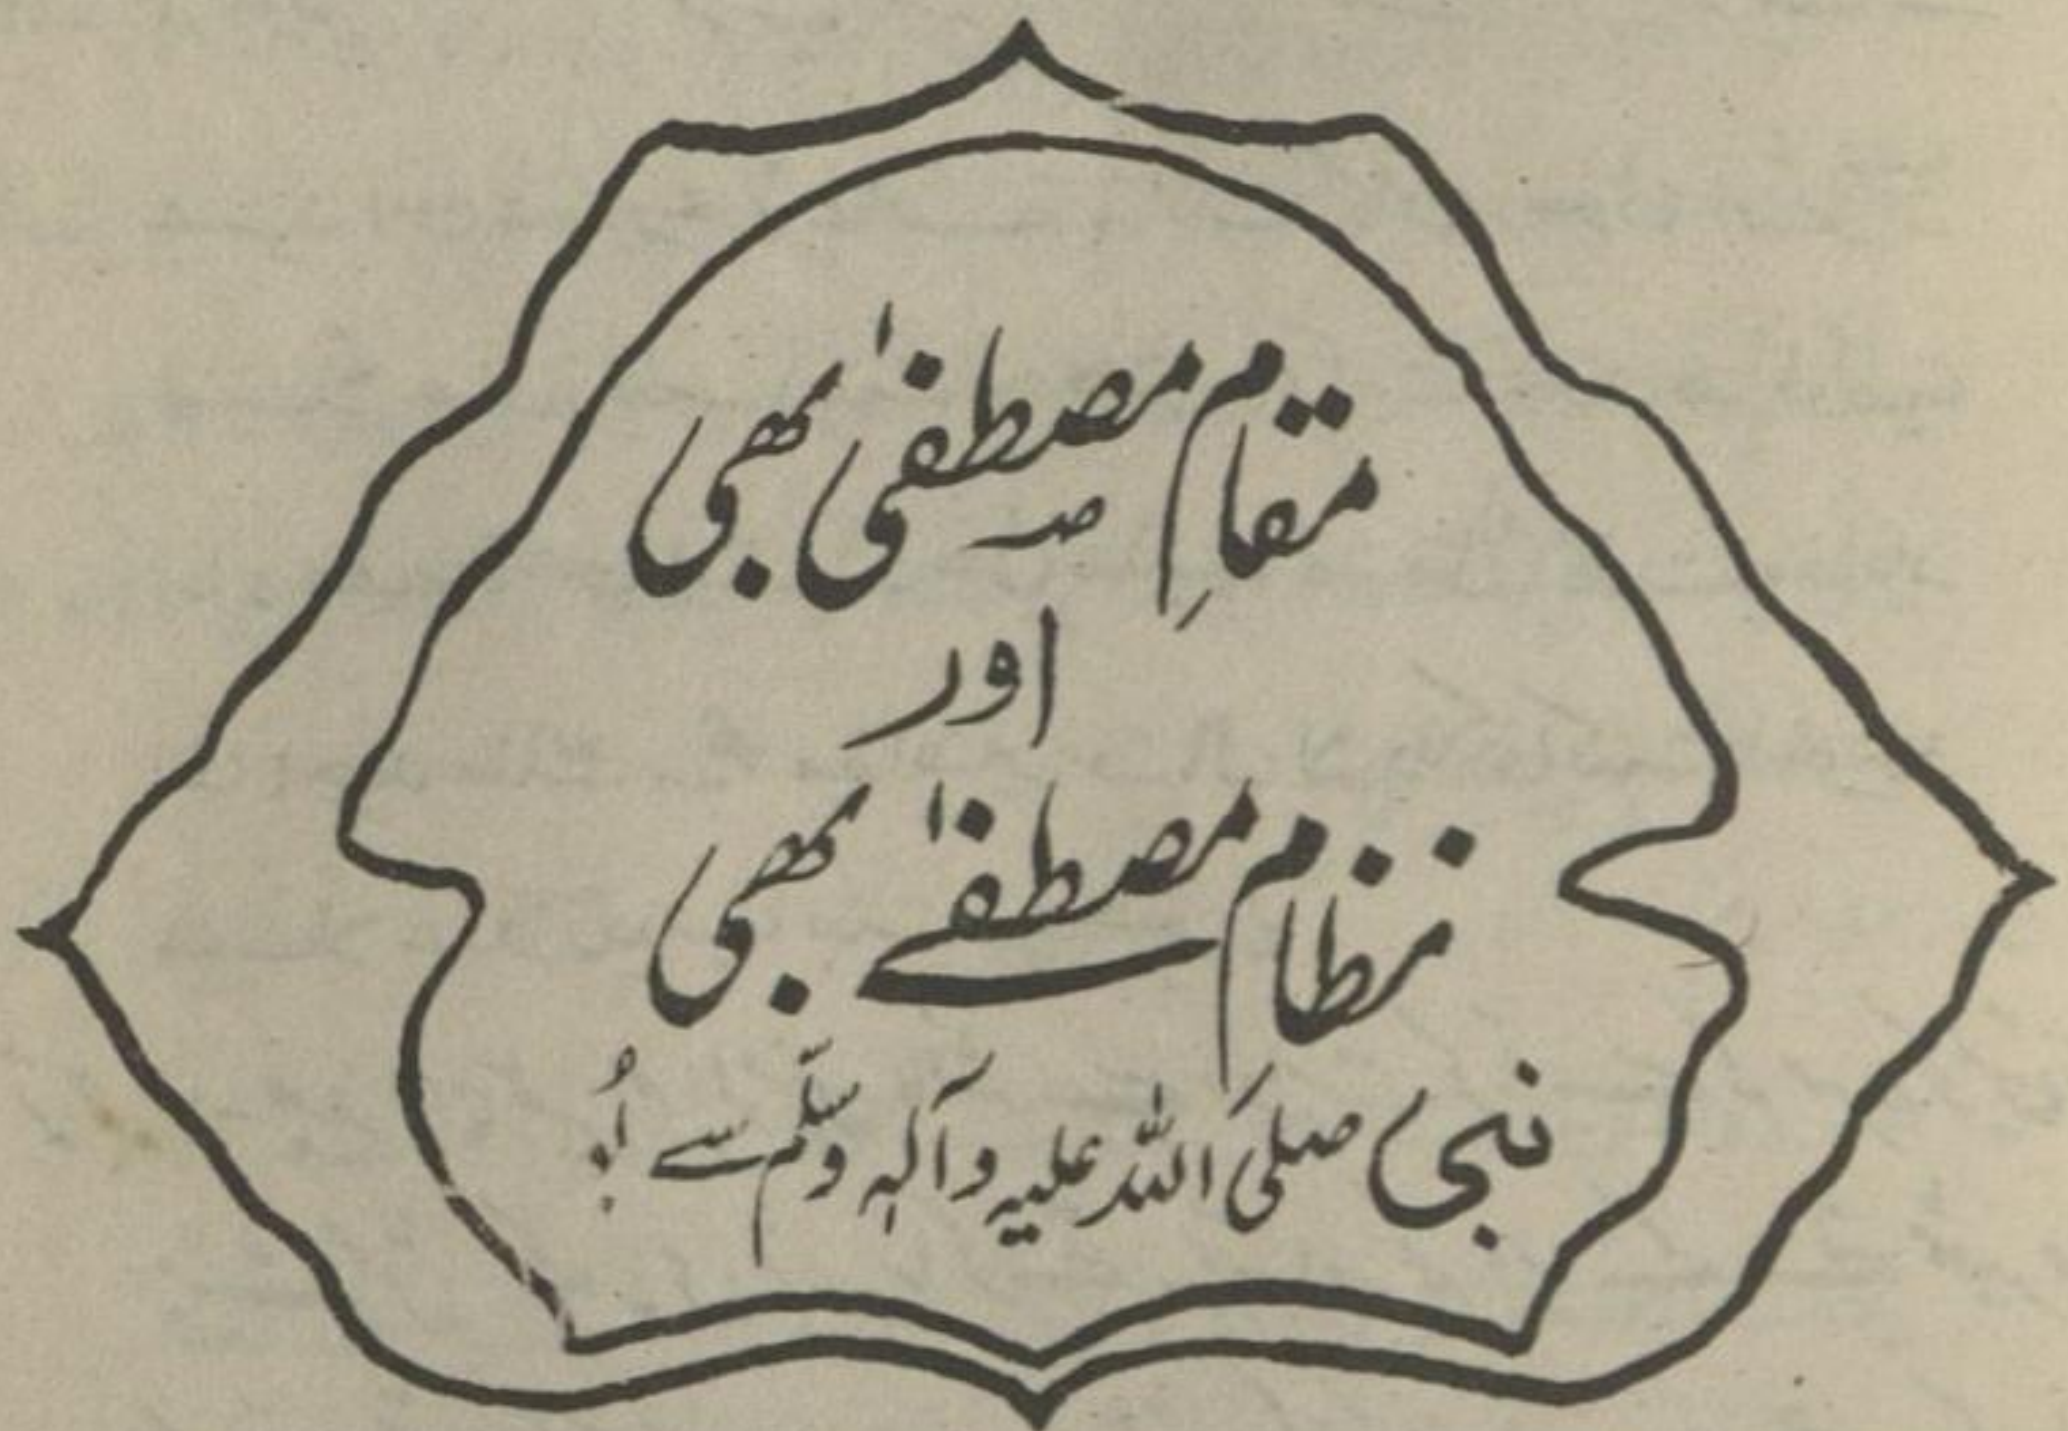 مقامِ مصطفیٰ بھی
اور
نظام مصطفےٰ بھی
نبی صلی اللہ علیہ وآلہٖ وسلّم سے